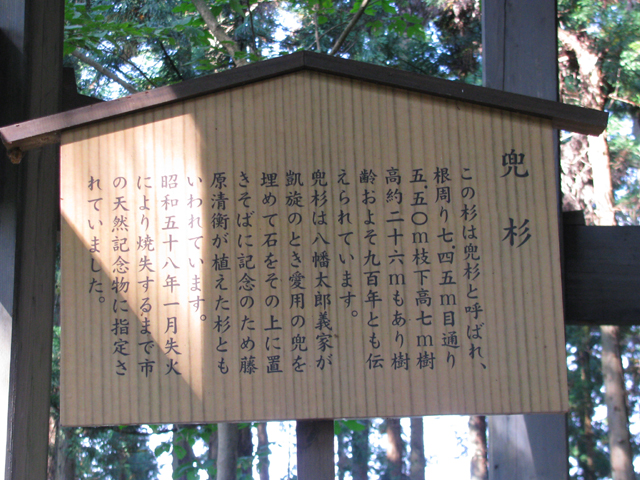 兜杉
この杉は兜杉と呼ばれ、
根周り七.四五m目通り
五.五〇m枝下高七m樹
高約二十六mもあり樹
齢およそ九百年とも伝
えられています。
兜杉は八幡太郎義家が
凱旋のとき愛用の兜を
埋めて石をその上に置
きそばに記念のため藤
原清衡が植えた杉とも
いわれています。
昭和五十八年一月失火
により焼失するまで市
の天然記念物に指定さ
れていました。